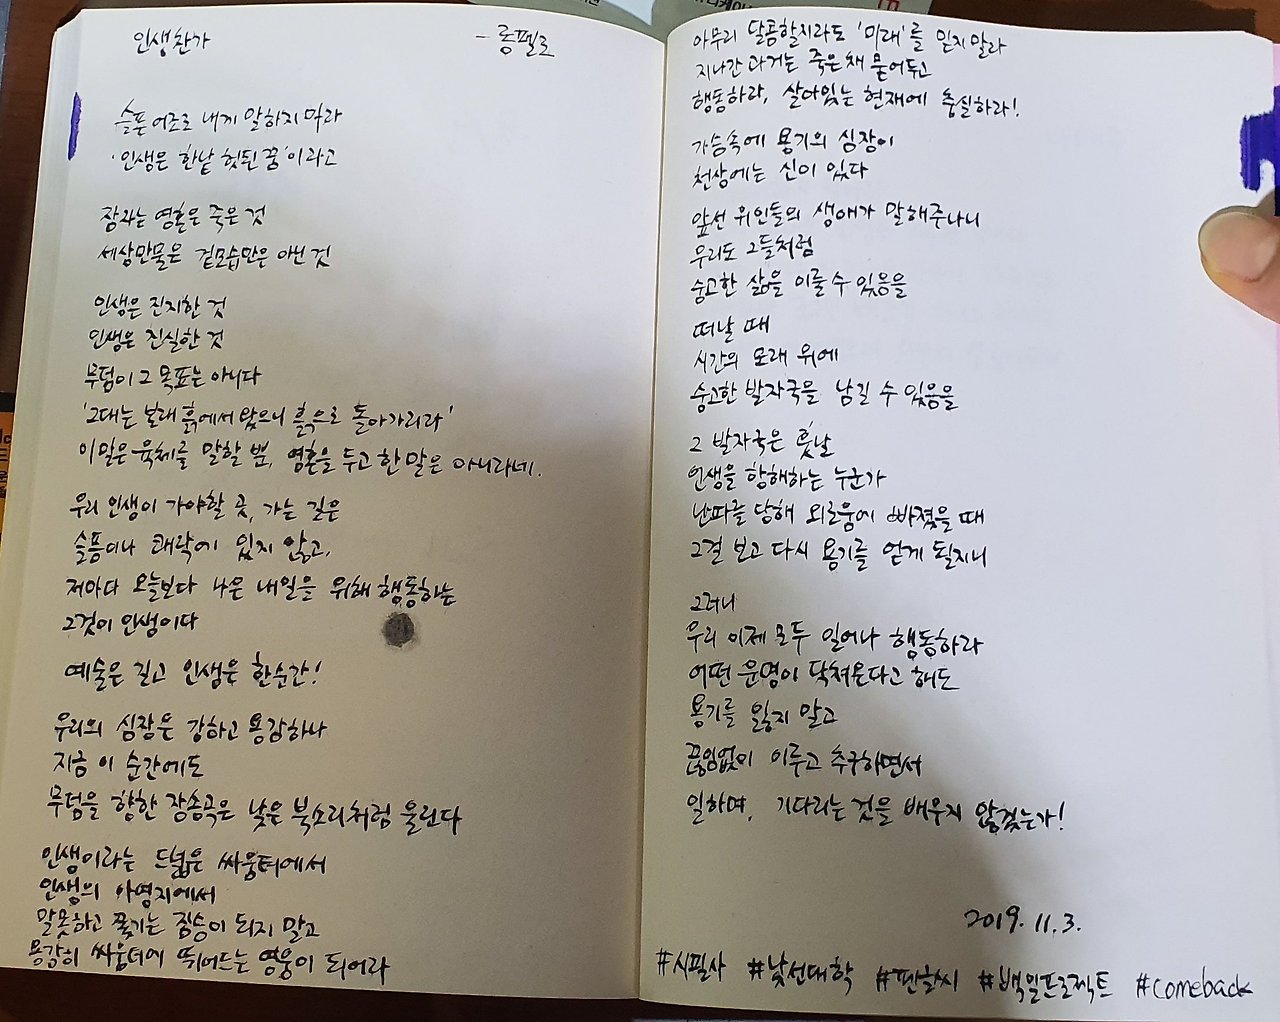 인생찬가 - 롱펠로
슬픈 어조로 내게 말하지 마라
'인생은 한낱 헛된 꿈'이라고
잠자는 영혼은 죽은 것
세상만물은 겉모습만은 아닌 것
인생은 진지한 것
인생은 진실한 것
무덤이 그 목표는 아니다
'그대는 본래 흙에서 왔으니 흙으로 돌아가리라'
이 말은 육체를 말할 뿐, 영혼을 두고 한 말은 아니라네.
우리 인생이 가야할 곳, 가는 길은
슬픔이나 쾌락에 있지 않고,
저마다 오늘보다 나은 내일을 위해 행동하는
그것이 인생이다
예술은 길고 인생은 한순간!
우리의 심장은 강하고 용감하나
지금 이 순간에도
무덤을 향한 장송곡은 낮은 북소리처럼 울린다
인생이라는 드넓은 싸움터에서
인생의 야영지에서
말못하고 쫓기는 짐승이 되지 말고
용감히 싸움터에 뛰어드는 영웅이 되어라
아무리 달콤할지라도 '미래'를 믿지 말라
지나간 과거는 죽은채 묻어두고
행동하라, 살아있는 현재에 충실하라!
가슴속에 용기의 심장이
천상에는 신이 있다
앞선 위인들의 생애가 말해주나니
우리도 그들처럼
숭고한 삶을 이룰 수 있음을
떠날 때
시간의 모래 위에
숭고한 발자국을 남길 수 있음을
그 발자국은 훗날
인생을 항해하는 누군가
난파를 당해 외로움에 빠졌을 때
그걸 보고 다시 용기를 얻게 될지니
그러니
우리 이제 모두 일어나 행동하라
어떤 운명이 닥쳐온다고 해도
용기를 잃지 말고
끊임없이 이루고 추구하면서
일하며, 기다리는 것을 배우지 않겠는가!
2019. 11. 3.
#시필사 #낯선대학 #펜글씨 #백일프로젝트 #comeback